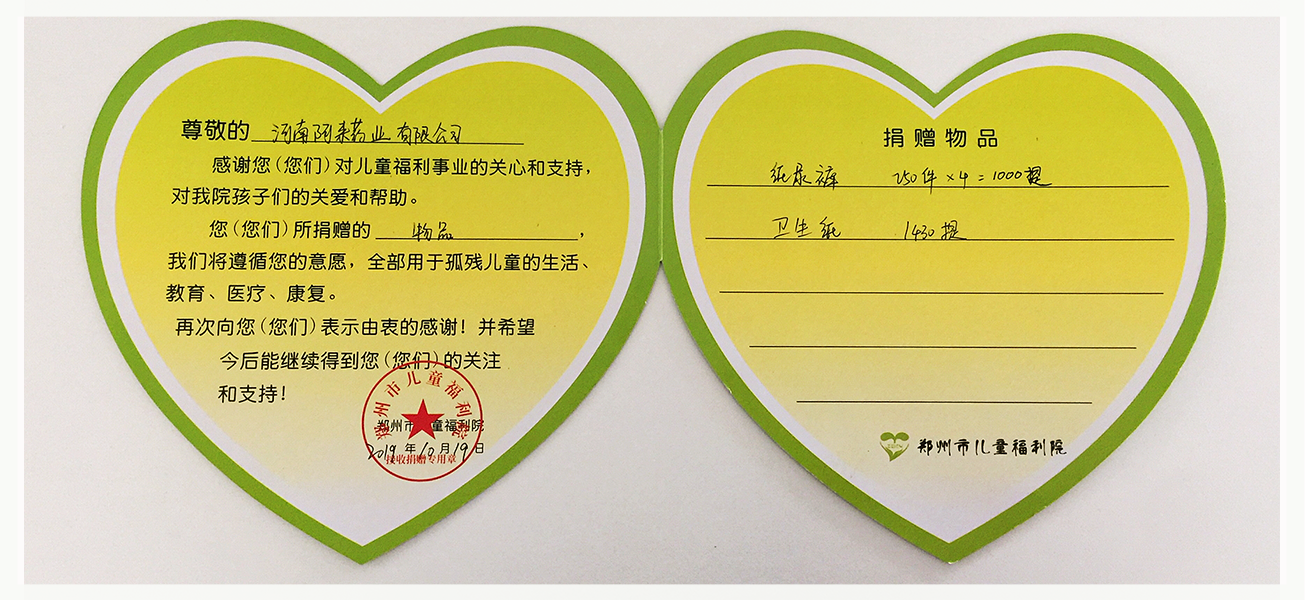 尊敬的 河南阿来药业有限公司
感谢您(您们)对儿童福利事业的关心和支持,
对我院孩子们的关爱和帮助。
您(您们)所捐赠的 物品 ,
我们将遵循您的意愿,全部用于孤残儿童的生活、
教育、医疗、康复。
再次向您(您们)表示由衷的感谢!并希望
今后能继续得到您(您们)的关注
和支持!
郑州市儿童福利院
郑州市儿童福利院
2019年10月19日
接收捐赠专用章
捐赠物品
纸尿裤 250件×4=1000提
卫生纸 1430提
郑州市儿童福利院